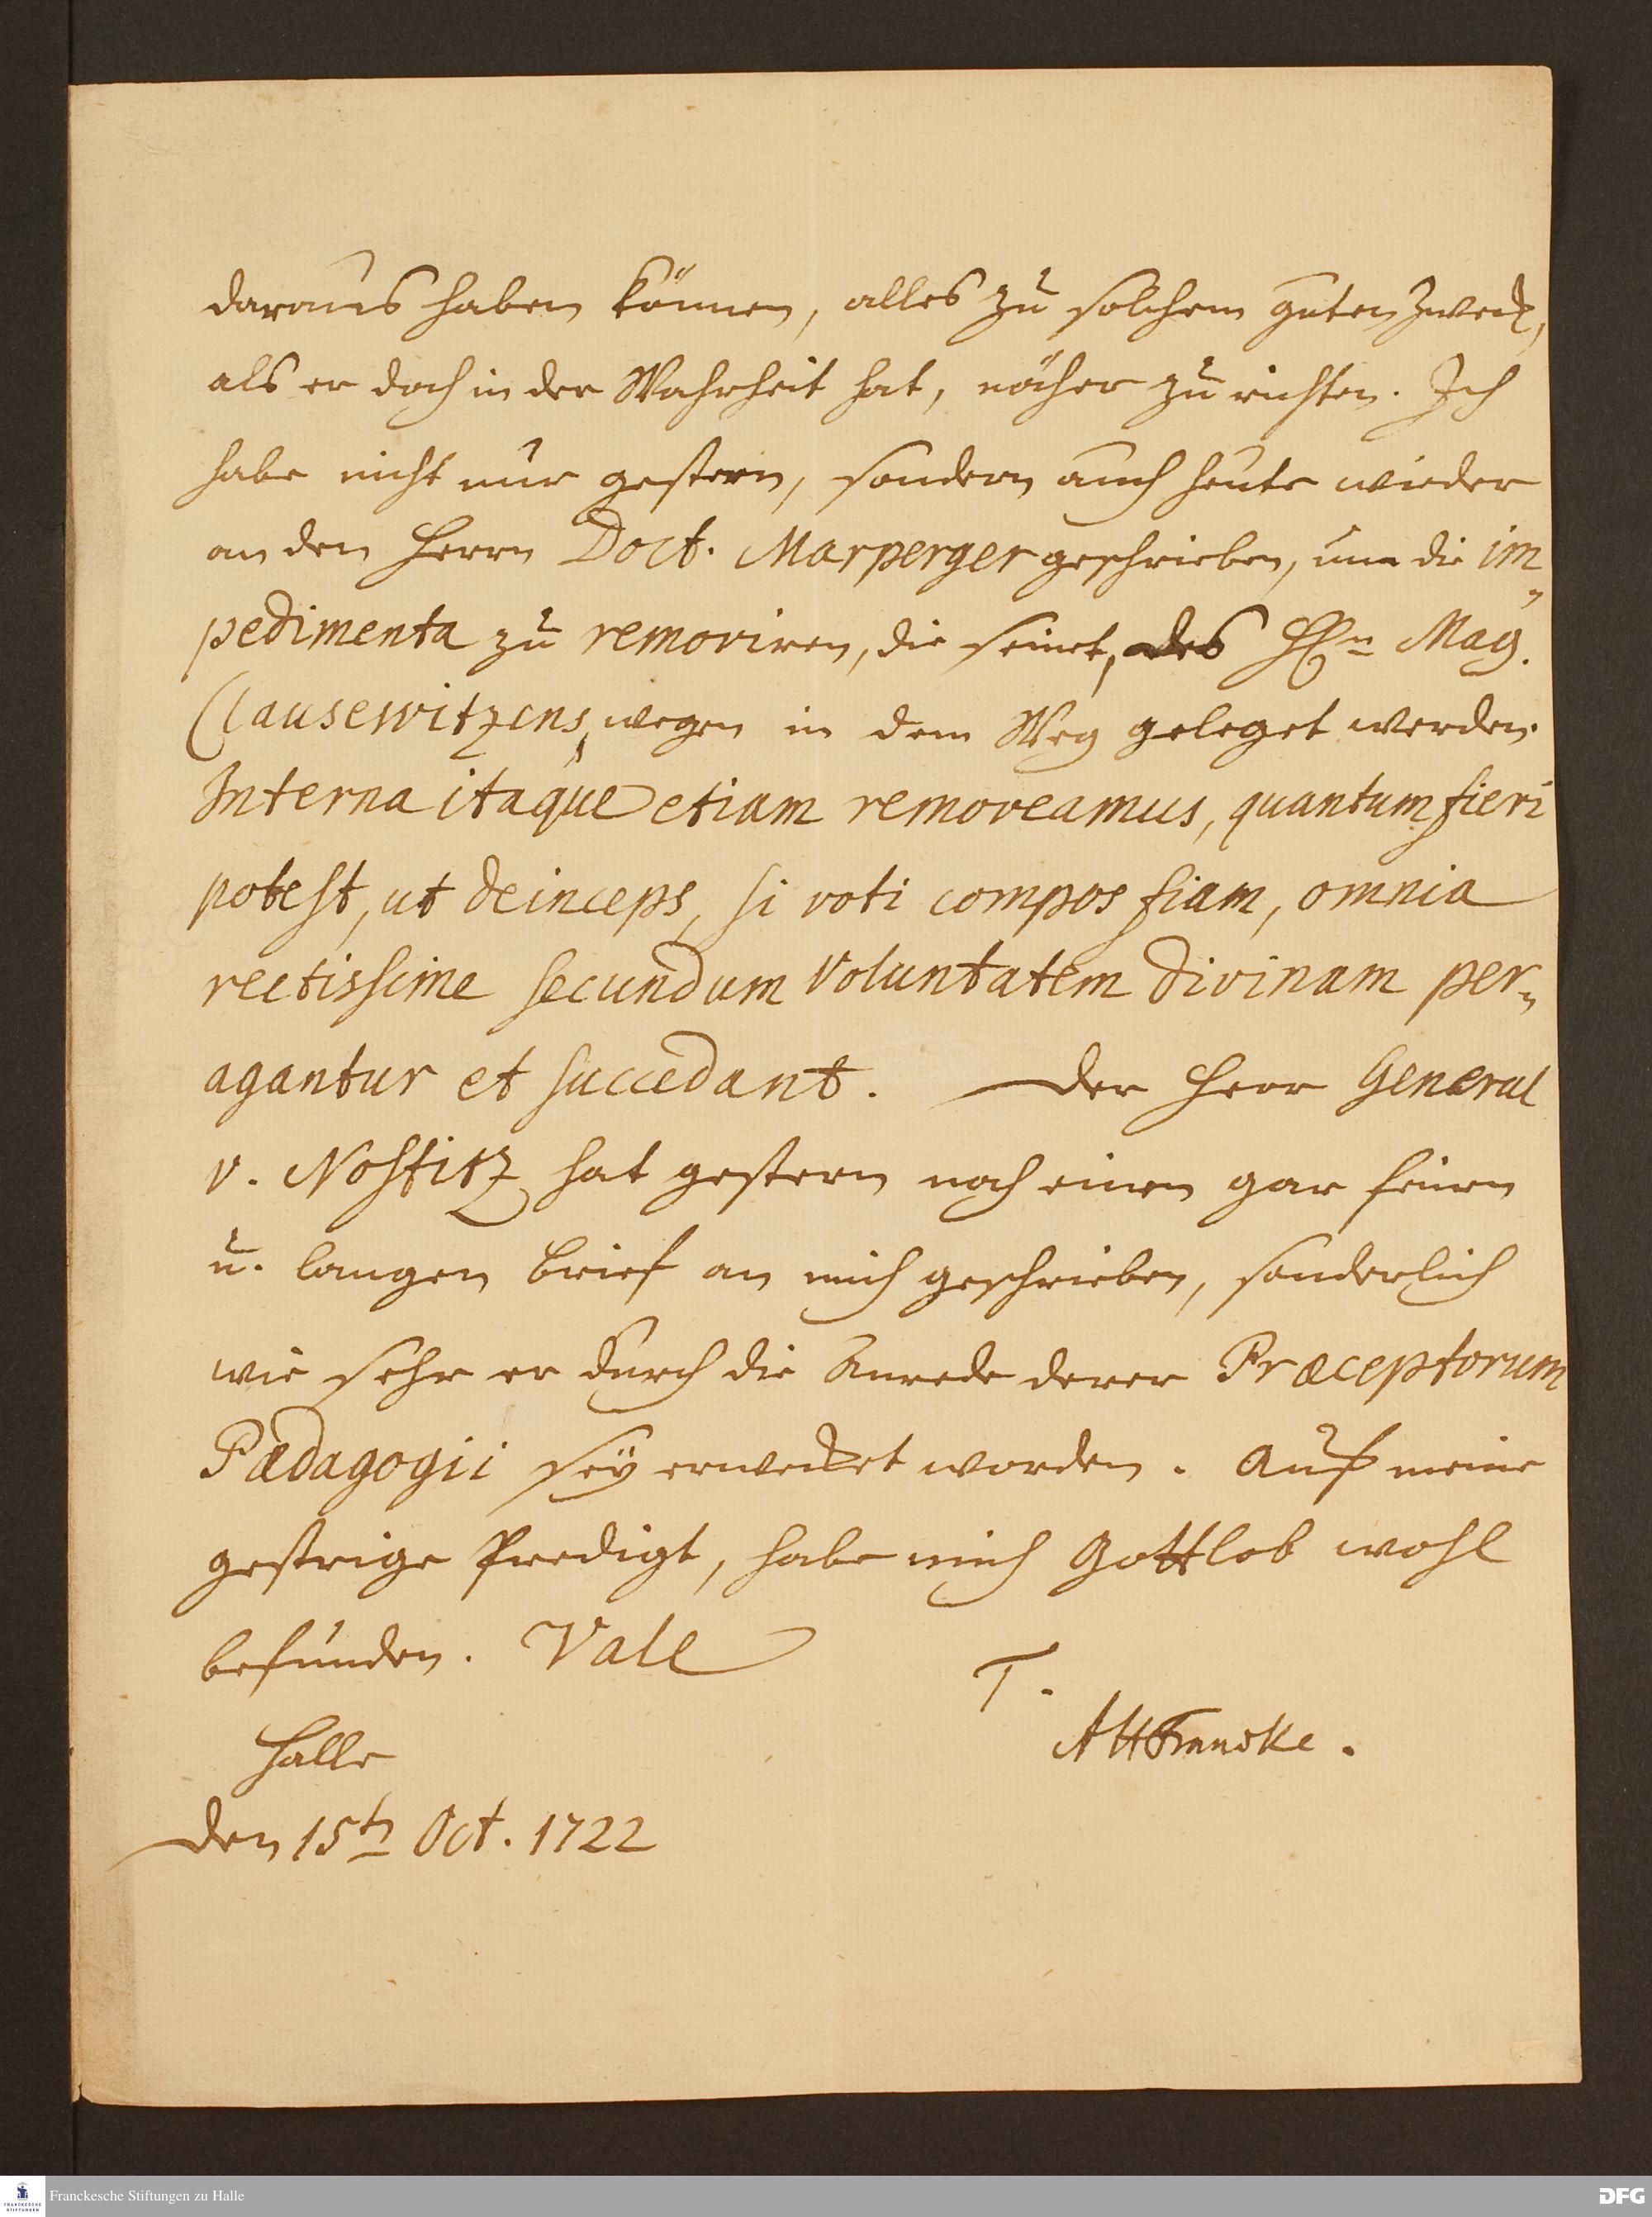 daraus haben können, alles zu solchem guten Zweck,
als er doch in der Wahrheit hat, näher zu richten. Ich
habe nicht nur gestern, sondern auch heute wieder
an den Herrn Doct. Marperger geschrieben, um die im„
pedimenta zu removiren, die seinet, des HEn Mag.
Clausewitzens, wegen in dem Weg geleget werden.
Interna itaque etiam removeamus, quantum fieri
potest, ut deinceps, si voti compos fiam, omnia
rectissime secundum voluntatem divinam per„
agantur et succedant. Der Herr General
v. Nostitz hat gestern noch einen gar feinen
u. langen brief an mich geschrieben, sonderlich
wie sehr er durch die Anrede derer Præceptorum
Pædagogii seÿ erwecket worden. Auf meine
gestrige Predigt, habe mich Gottlob wohl
befunden. Vale
T.
AHFrancke.
Halle
den 15tn Oct. 1722
Franckesche Stiftungen zu Halle
DFG